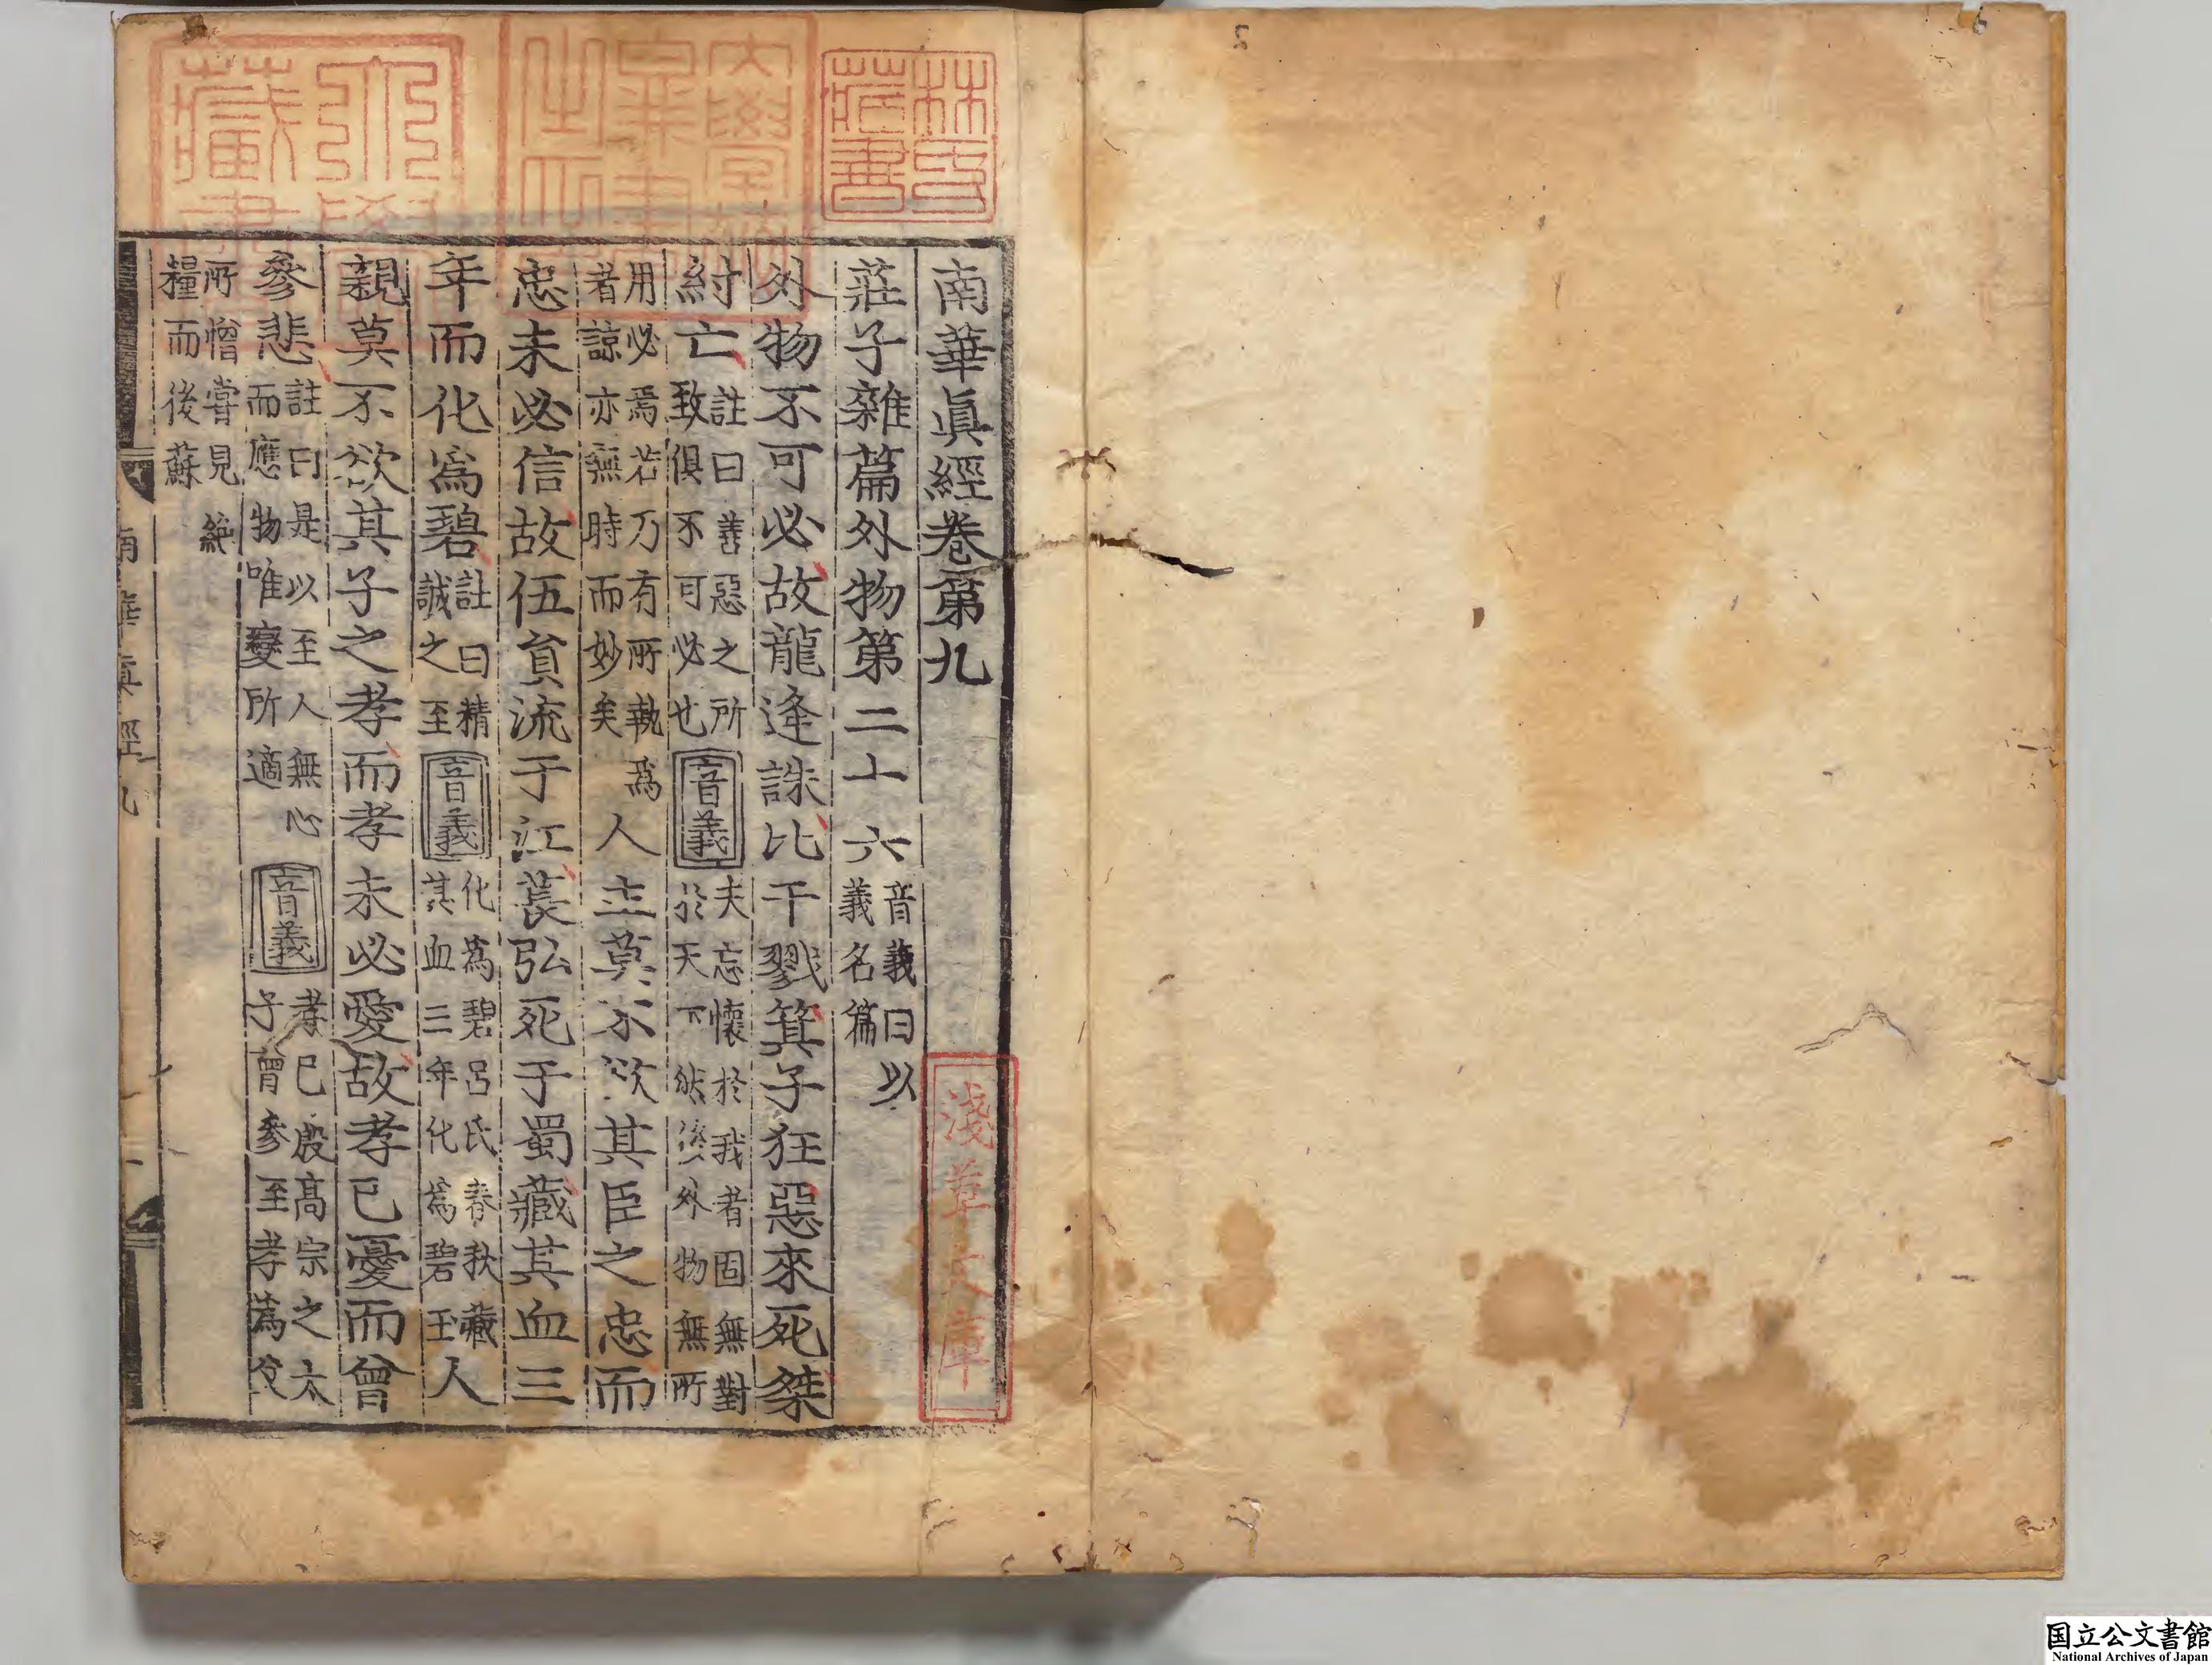 南華眞經卷第九
莊子雜篇外物第二十六 音義曰以義名篇
外物不可必故龍逄誅比干戮箕子狂惡來死桀
紂亡 註曰善惡之所致俱不可必也 音義 夫忘懷於我者固無對於天下然後外物無所
用必焉若乃有所執爲者諒亦無時而妙矣 人主莫不欲其臣之忠而
忠未必信故伍貟流于江萇弘死于蜀藏其血三
年而化爲碧 註曰精誠之至 音義 化爲碧呂氏春秋藏其血三年化爲碧玉 人
親莫不欲其子之孝而孝未必愛故孝已憂而曾
參悲 註曰是以至人無心而應物唯變所適 音義 孝已殷髙宗之太子曾參至孝爲父
所憎嘗見絕糧而後蘇
南華真經九
林氏藏書
淺草文庫
国立公文書館
National Archives of Japan